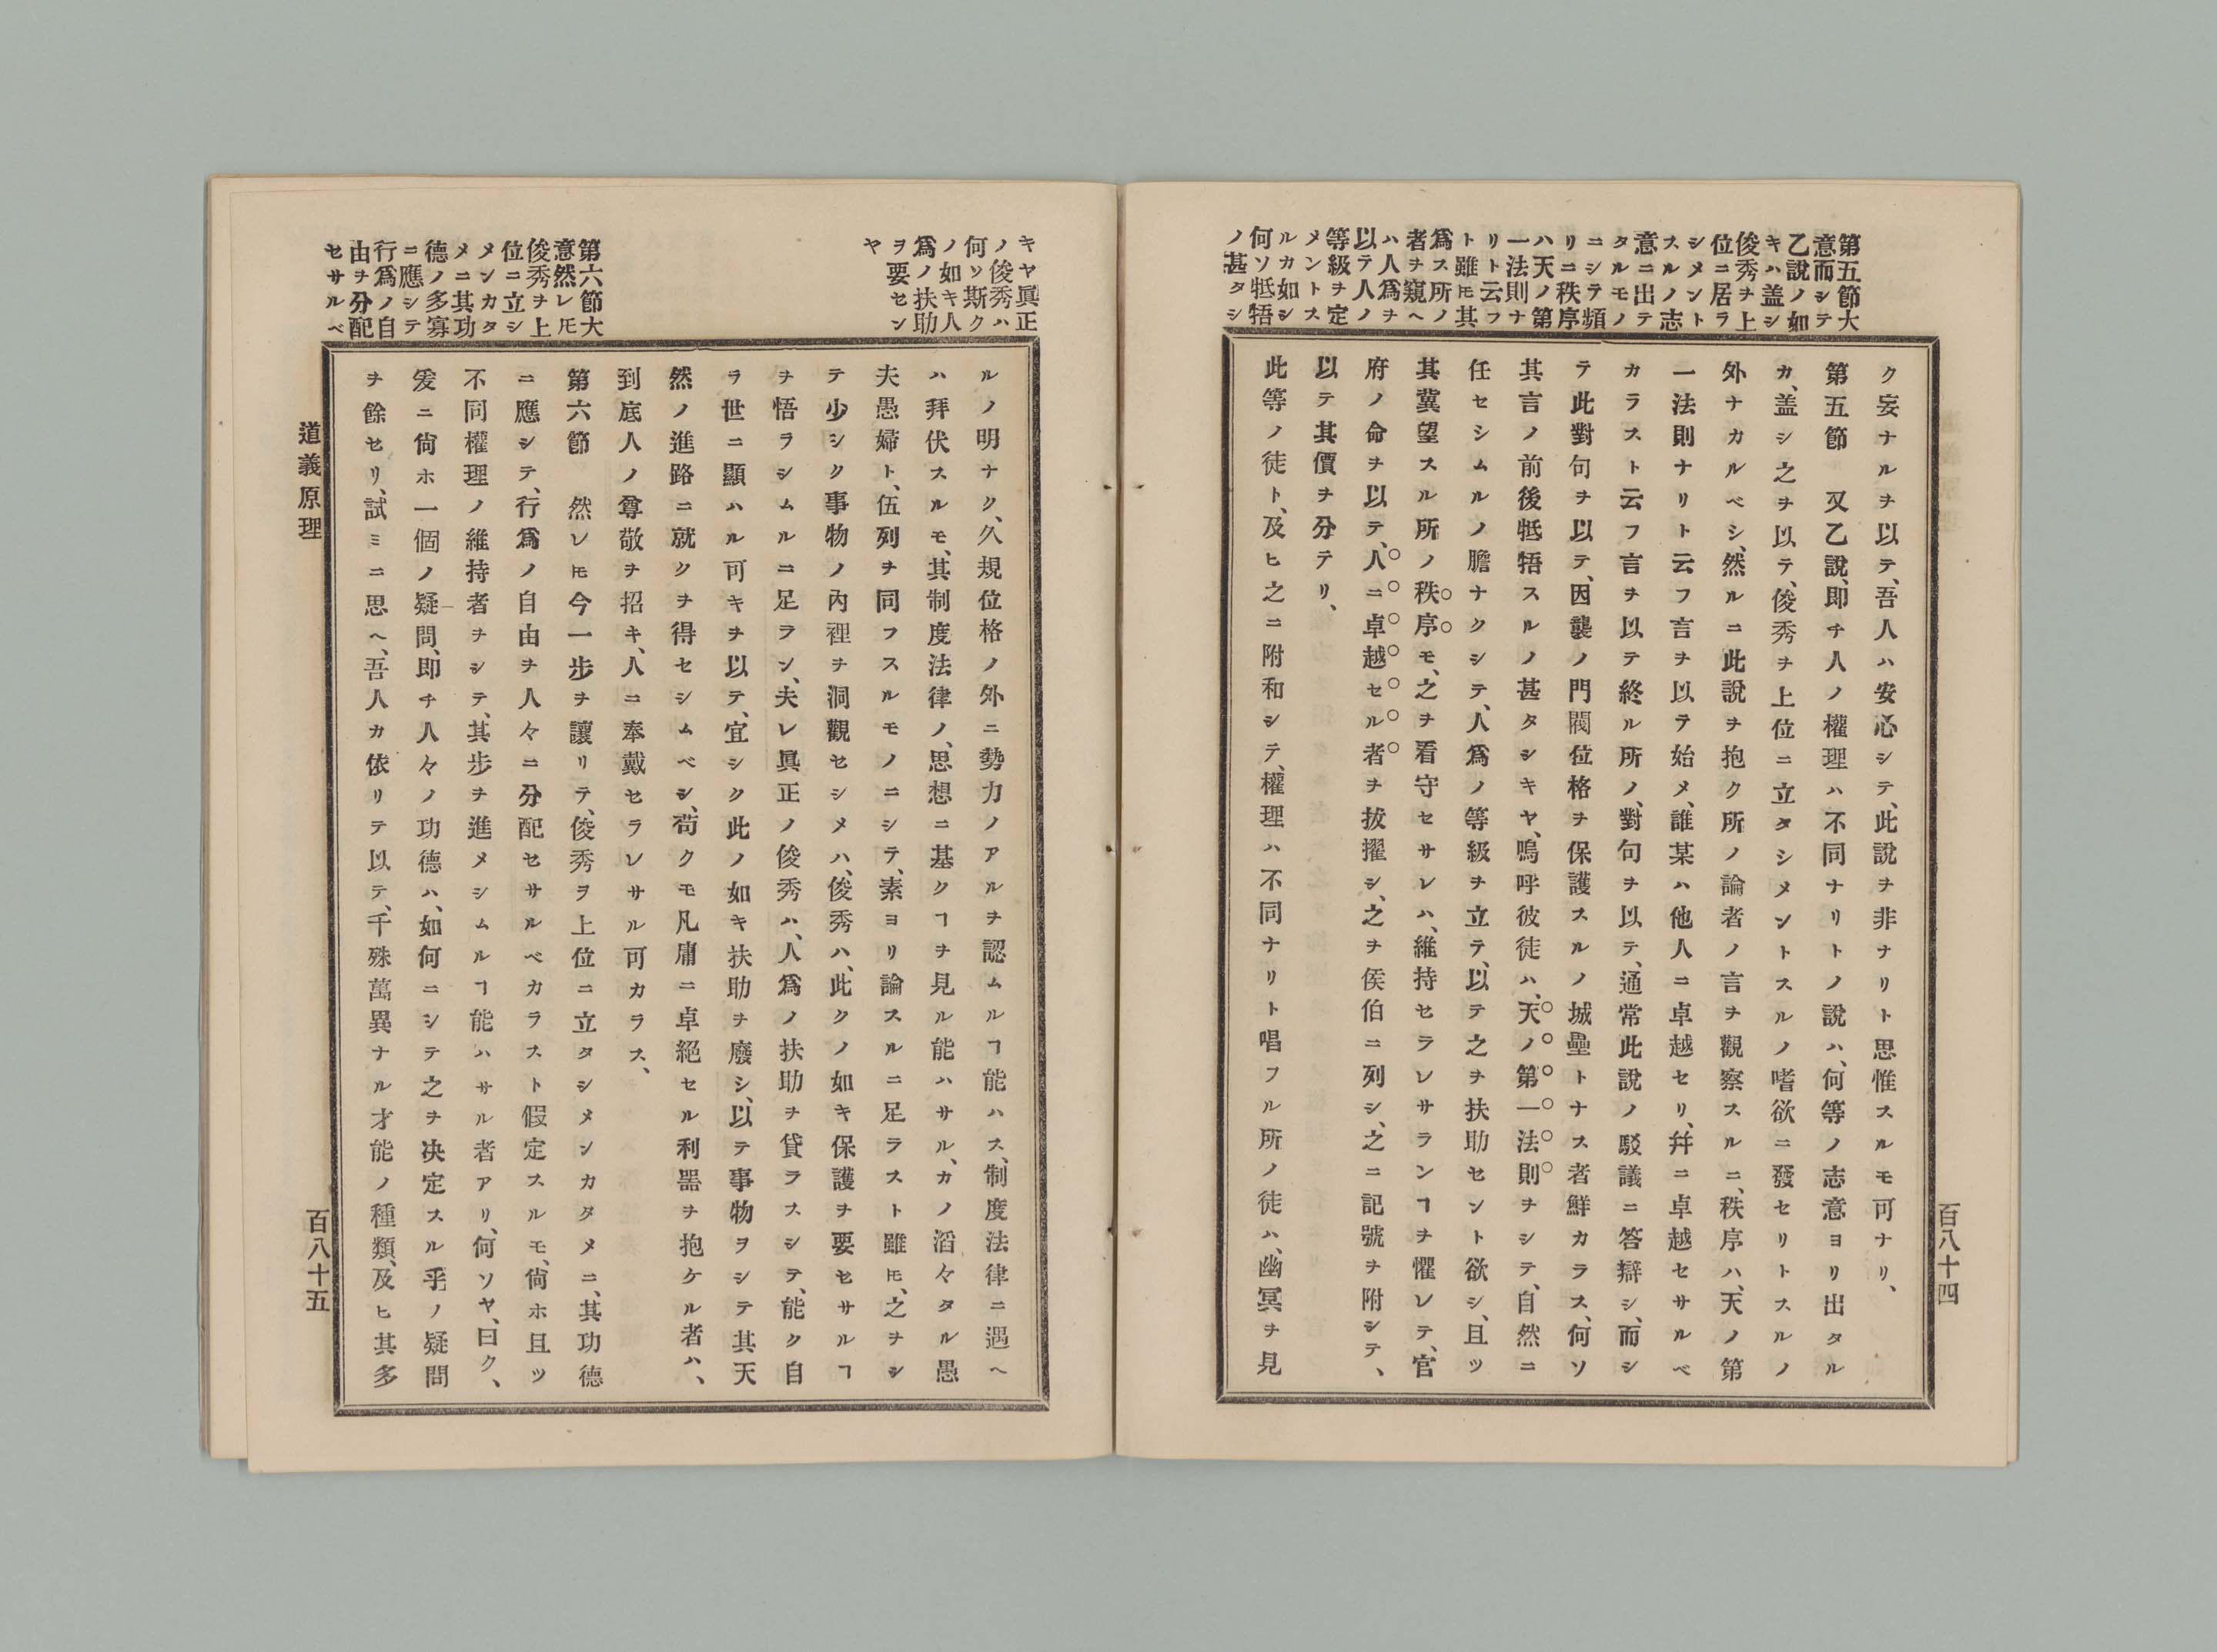 第五節大
意而シテ
乙說ノ如
キハ盖シ
俊秀ヲ上
位ニ居ラ
シメント
スルノ志
意ニ出テ
タルモノ
ニシテ頻
リニ秩序
ハ天ノ第
一法則ナ
リト云フ
ト雖𪜈其
爲ス所ノ
者ヲ窺ヘ
ハ人爲ヲ
以テ人ノ
等級ヲ定
メントス
ルカ如シ
何ソ牴牾
ノ甚タシ
ク妄ナルヲ以テ、吾人ハ安心シテ、此說ヲ非ナリト思惟スルモ可ナリ、
第五節　又乙說、即チ人ノ權理ハ不同ナリトノ說ハ、何等ノ志意ヨリ出タル
カ、盖シ之ヲ以テ、俊秀ヲ上位ニ立タシメントスルノ嗜欲ニ發セリトスルノ
外ナカルベシ、然ルニ此說ヲ抱ク所ノ論者ノ言ヲ觀察スルニ、秩序ハ、天ノ第
一法則ナリト云フ言ヲ以テ始メ、誰某ハ他人ニ卓越セリ、幷ニ卓越セサルベ
カラスト云フ言ヲ以テ終ル所ノ、對句ヲ以テ、通常此說ノ駁議ニ答辯シ、而シ
テ此對句ヲ以テ、因襲ノ門閥位格ヲ保護スルノ城壘トナス者鮮カラス、何ソ
其言ノ前後牴牾スルノ甚タシキヤ、嗚呼彼徒ハ、天ノ第一法則ヲシテ、自然ニ
任セシムルノ膽ナクシテ、人爲ノ等級ヲ立テ、以テ之ヲ扶助セント欲シ、且ツ
其冀望スル所ノ秩序モ、之ヲ看守セサレハ、維持セラレサランヿヲ懼レテ、官
府ノ命ヲ以テ、人ニ卓越セル者ヲ拔擢シ、之ヲ侯伯ニ列シ、之ニ記號ヲ附シテ、
以テ其價ヲ分テリ、
此等ノ徒ト、及ヒ之ニ附和シテ、權理ハ不同ナリト唱フル所ノ徒ハ、幽冥ヲ見
百八十四
キヤ眞正
ノ俊秀ハ
何ソ斯ク
ノ如キ人
爲ノ扶助
ヲ要セン
ヤ
ルノ明ナク、久規位格ノ外ニ勢力ノアルヲ認ムルヿ能ハス、制度法律ニ遇ヘ
ハ拜伏スルモ、其制度法律ノ、思想ニ基クヿヲ見ル能ハサル、カノ滔々タル愚
夫愚婦ト、伍列ヲ同フスルモノニシテ、素ヨリ論スルニ足ラスト雖𪜈、之ヲシ
テ少シク事物ノ內裡ヲ洞觀セシメハ、俊秀ハ、此クノ如キ保護ヲ要セサルヿ
ヲ悟ラシムルニ足ラン、夫レ眞正ノ俊秀ハ、人爲ノ扶助ヲ貸ラスシテ、能ク自
ラ世ニ顯ハル可キヲ以テ、宜シク此ノ如キ扶助ヲ廢シ、以テ事物ヲシテ其天
然ノ進路ニ就クヲ得セシムベシ、苟クモ凡庸ニ卓絕セル利噐ヲ抱ケル者ハ、
到底人ノ尊敬ヲ招キ、人ニ奉戴セラレサル可カラス、
第六節大
意然レ𪜈
俊秀ヲ上
位ニ立シ
メンカタ
メニ其功
德ノ多寡
ニ應シテ
行爲ノ自
由ヲ分配
セサルベ
第六節　然レ𪜈今一步ヲ讓リテ、俊秀ヲ上位ニ立タシメンカタメニ、其功德
ニ應シテ、行爲ノ自由ヲ人々ニ分配セサルベカラスト假定スルモ、尙ホ且ツ
不同權理ノ維持者ヲシテ、其步ヲ進メシムルヿ能ハサル者アリ、何ソヤ、曰ク、
爰ニ尙ホ一個ノ疑問、即チ人々ノ功德ハ、如何ニシテ之ヲ決定スル乎ノ疑問
ヲ餘セリ、試ミニ思ヘ、吾人カ依リテ以テ、千殊萬異ナル才能ノ種類、及ヒ其多
道義原理
百八十五